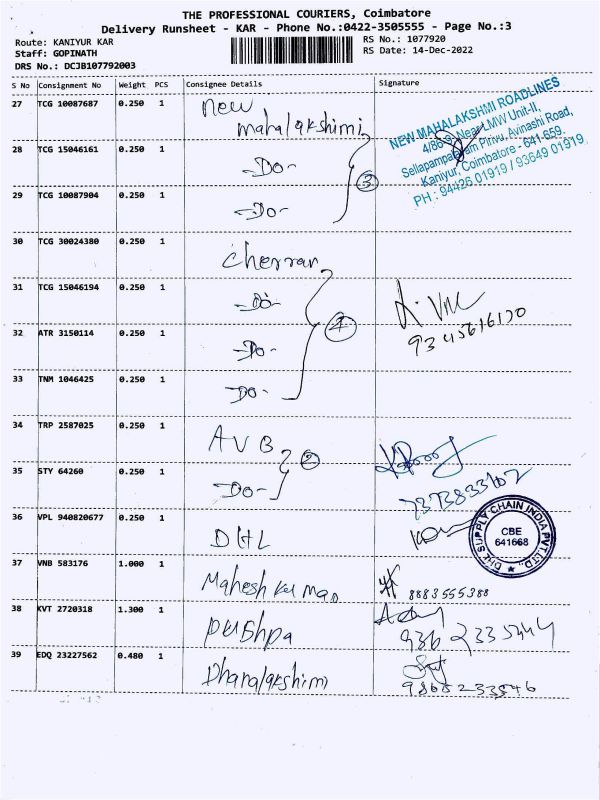 THE PROFESSIONAL COURIERS, Coimbatore
Delivery Runsheet - KAR - Phone No.:0422-3505555 - Page No.:3
Route: KANIYUR KAR
Staff: GOPINATH
DRS No.: DCJB107792003
RS No.: 1077920
RS Date: 14-Dec-2022
S No Consignment No Weight PCS Consignee Details Signature
27 TCG 10087687 0.250 1 New
Mahalakshimi
28 TCG 15046161 0.250 1 -Do-
29 TCG 10087904 0.250 1 -Do-
3
NEW MAHALAKSHMI ROADLINES
4/86-9, Near LMW Unit-II,
Sellapampalayam Pirivu, Avinashi Road,
Kaniyur, Coimbatore - 641 659.
PH : 94426 01919 / 93649 01919
30 TCG 30024380 0.250 1 Cherran
31 TCG 15046194 0.250 1 -Do-
32 ATR 3150114 0.250 1 -Do-
33 TNM 1046425 0.250 1 -Do-
4
9345616170
34 TRP 2587025 0.250 1 AVB
35 STY 64260 0.250 1 -Do-
2
7373833102
36 VPL 940820677 0.250 1 DHL
DHL SUPPLY CHAIN INDIA PVT. LTD.,
CBE
641668
37 VNB 583176 1.000 1 Mahesh kumar
8883555388
38 KVT 2720318 1.300 1 pushpa
936 2335344
39 EDQ 23227562 0.480 1 Dhanalakshimi
9865233546